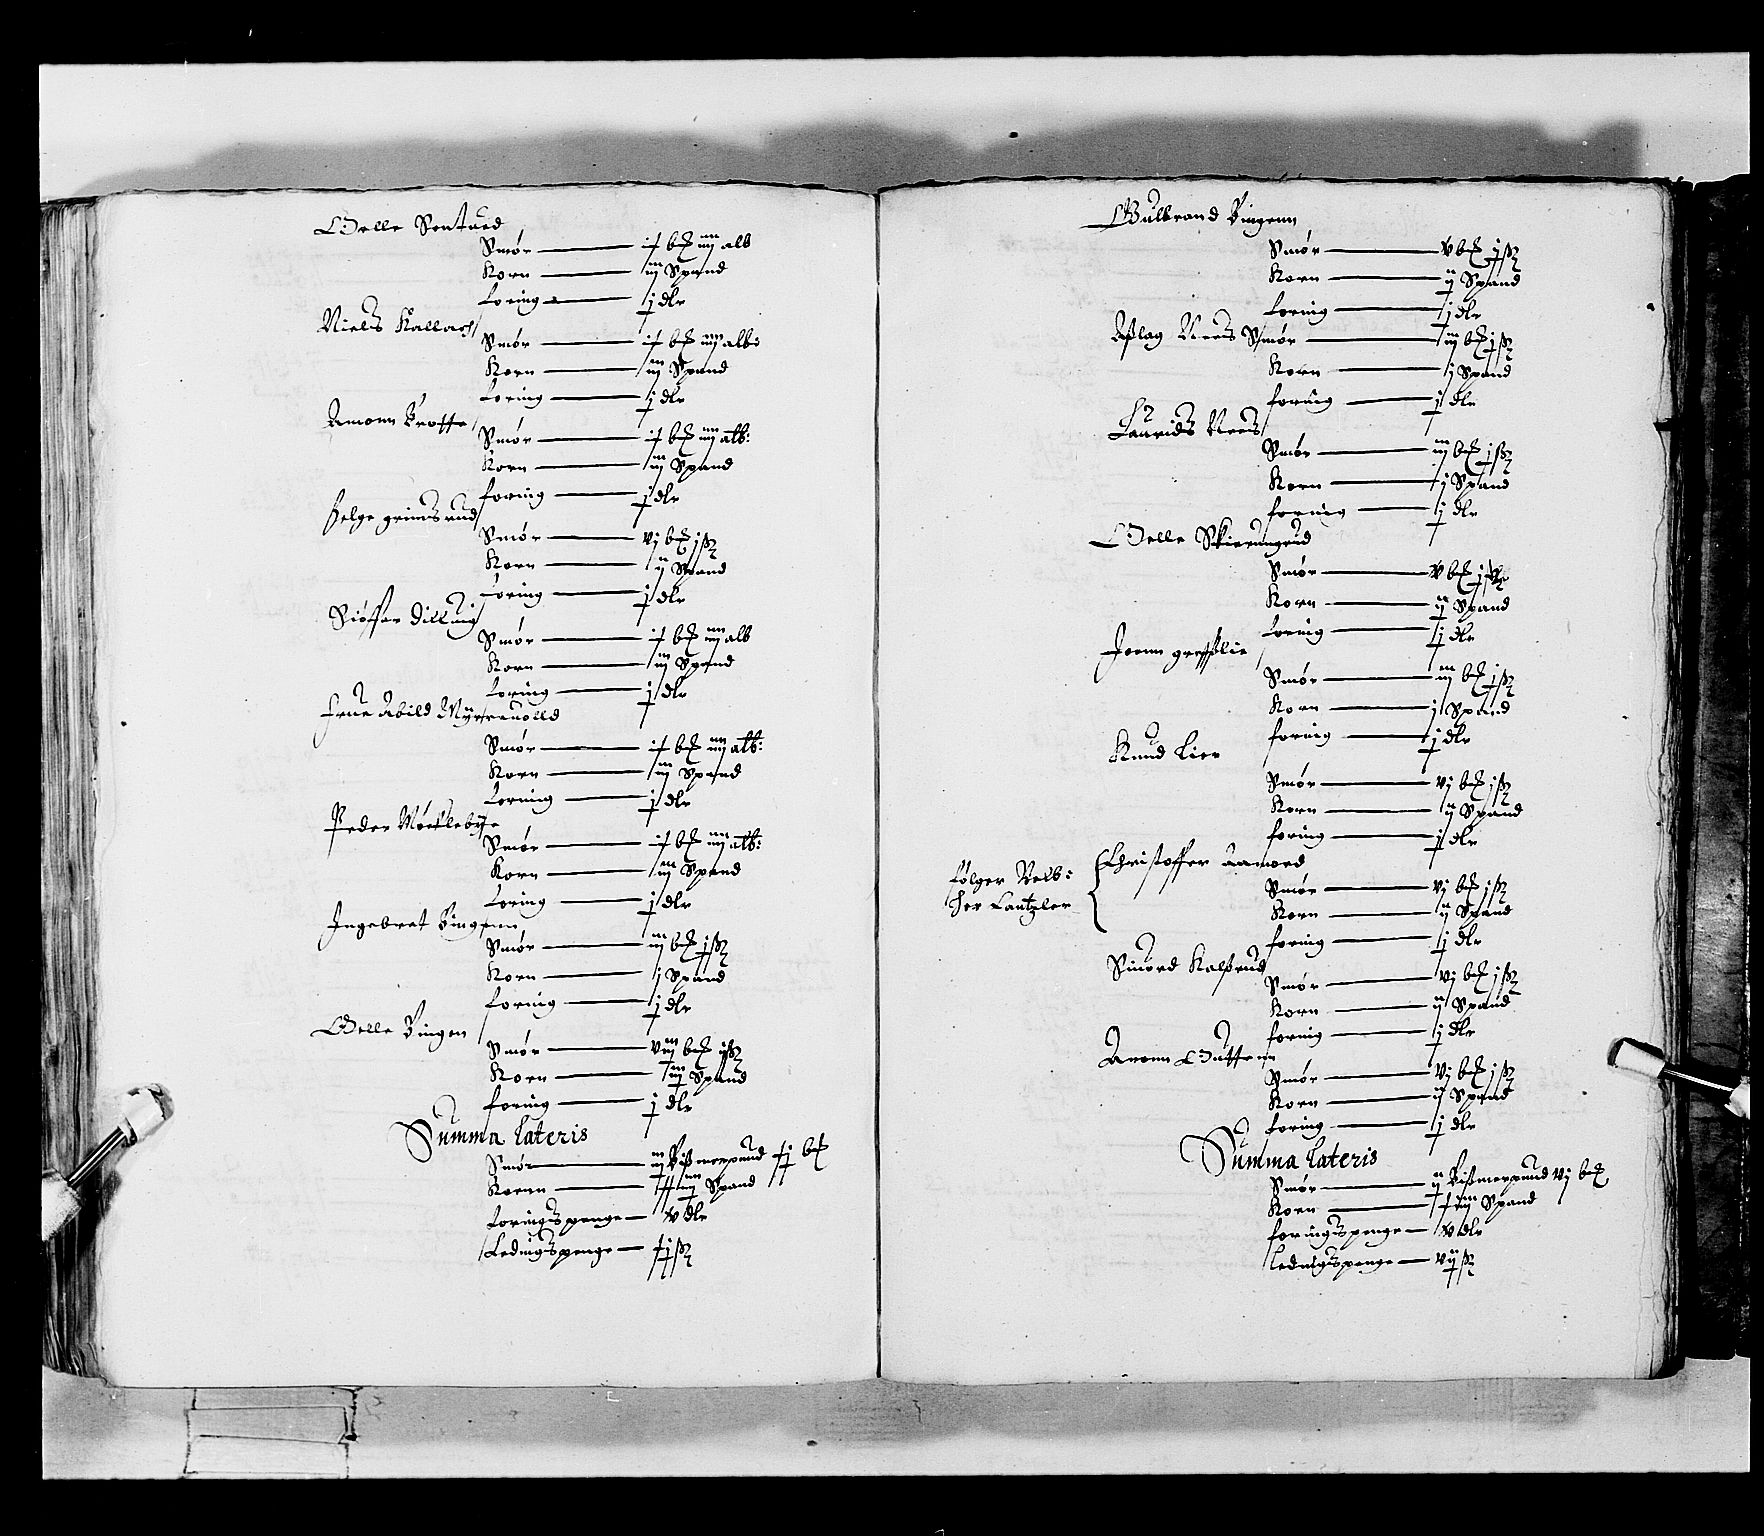 Oelle Sontued
Smør — ix bꝫ iiij alb
Korn — iij Spand
foring — j dlr
Niels Kallach
Smør — ix bꝫ iiij alb:
Korn — iij Spand
foring — j dlr
Amonn Krotte
Smør — ix bꝫ iiij alb:
Korn — iij Spand
foring — j dlr
Helge grimsrud
Smør — vj bꝫ j ſꝫ
Korn — ij Spand
foring — j dlr
Siøffer Dilling
Smør — ix bꝫ iiij alb
Korn — iij Spand
foring — j dlr
Frue Abild Myrreuolld
Smør — ix bꝫ iiij alb:
Korn — iij Spand
foring — j dlr
Peder Mørkkebye
Smør — ix bꝫ iiij alb:
Korn — iij Spand
foring — j dlr
Ingebret Bingenn
Smør — iij bꝫ j ſꝫ
Korn — j Spand
foring — j dlr
Oelle Bingen
Smør — viij bꝫ ij ſꝫ
Korn — iij Spand
foring — j dlr
Summa lateris
Smør — iij Bißmerpund xj bꝫ
Kornn — xxiiij Spand
foringspenge — ix dlr
Ledingspenge — xj ſꝫ
Gulbrand Bingenn
Smør — v bꝫ j ſꝫ
Korn — ij Spand
foring — j dlr
Aßlag Nees Smør — iij bꝫ j ſꝫ
Korn — j Spand
foring — j dlr
Hr
Laurids Nees
Smør — iij bꝫ j ſꝫ
Korn — j Spand
foring — j dlr
Oelle Skierngrud
Smør — v bꝫ j ſꝫ
Korn — ij Spand
foring — j dlr
Joenn greßlie
Smør — iij bꝫ j ſꝫ
Korn — j Spand
foring — j dlr
Knud Lier
Smør — vj bꝫ j ſꝫ
Korn — ij Spand
foring — j dlr
følger Velb:
Her Cantzler
Christoffer Aamoed
Smør — vj bꝫ j ſꝫ
Korn — ij Spand
foring — j dlr
Siuord Kalßrud
Smør — vj bꝫ j ſꝫ
Korn — ij Spand
foring — j dlr
Amonn Outtenn
Smør — vj bꝫ j ſꝫ
Korn — ij Spand
foring — j dlr
Summa lateris
Smør — ij Bißmerpund vj bꝫ
Korn — xiiij Spand
foringspenge — ix dlr
Ledingspenge — vij ſꝫ